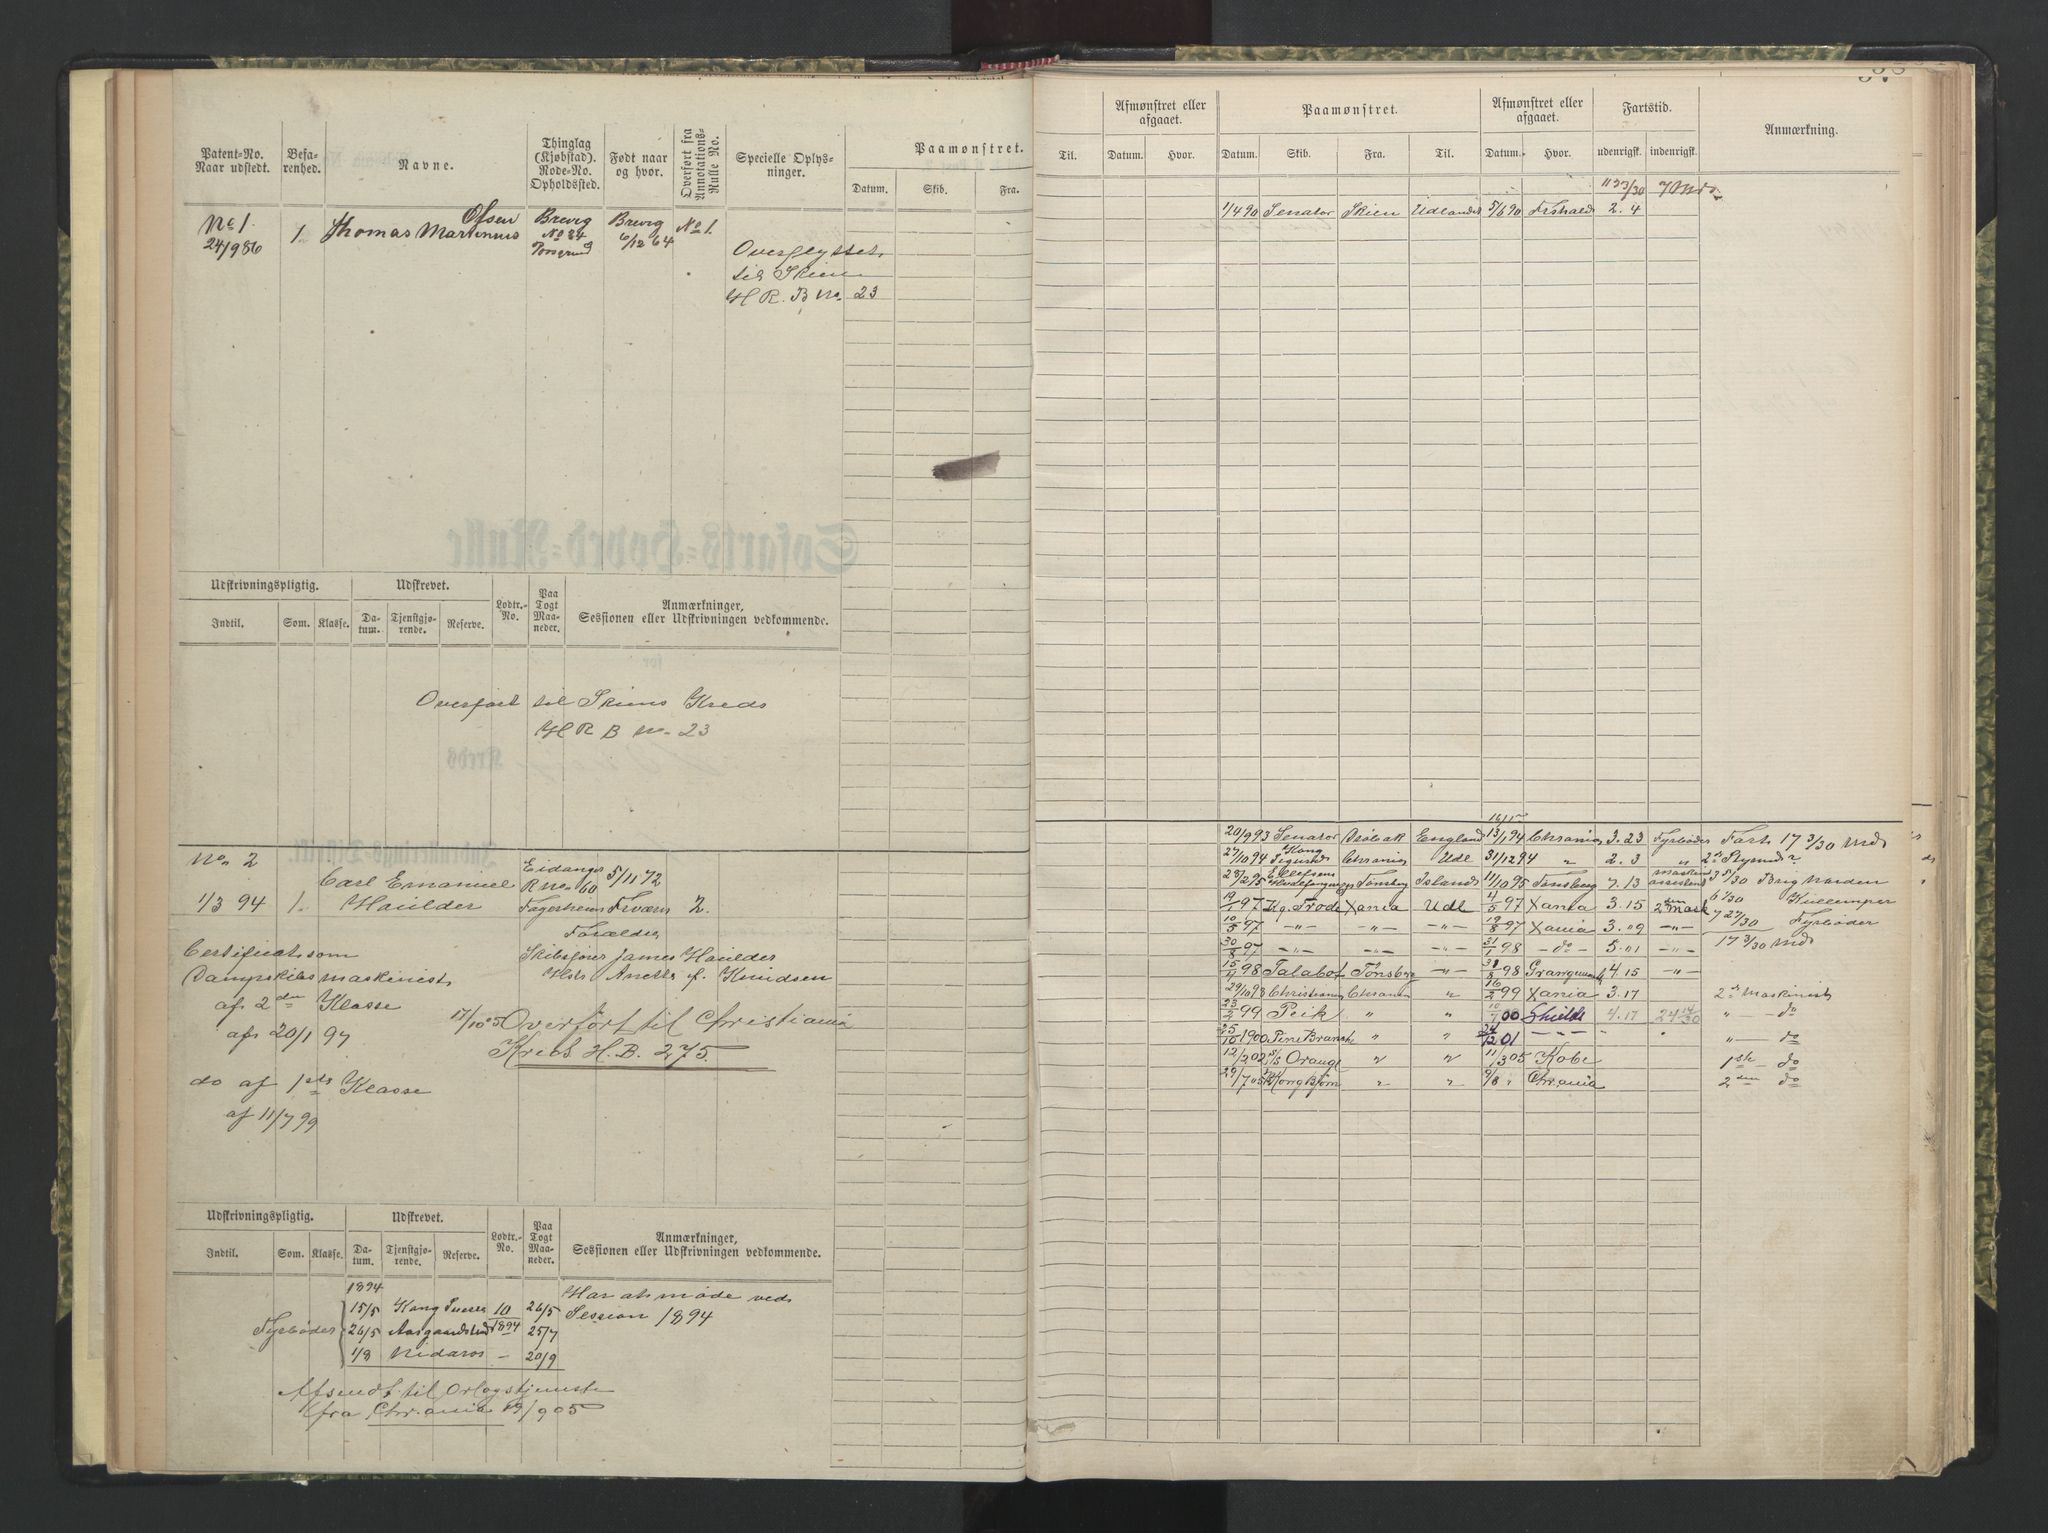 Patent-No. Naar udstedt.
Befarenhed.
Navne.
Thinglag (Kjøbstad). Rode-No. Opholdssted.
Født naar og hvor.
Overført fra Annotations-Rulle No.
Specielle Oplysninger.
Paamønstret.
Datum. Skib. Fra.
No 1. 24/9 86
1.
Thomas Martinius Olsen
Brevig No 84
Brevig 6/12 64
No 1.
Overflyttet
til Skien
H R. B No. 23
Udskrivningspligtig. Udskrevet. Lodtr.-No. Paa Togt Maaneder. Anmærkninger, Sessionen eller Udskrivningen vedkommende.
Indtil. Som. Klasse. Datum. Tjenstgjørende. Reserve.
Overført til Skiens Kreds
H R B No. 23
No. 2
1/3 94 1.
Carl Emanuel
Haulder
Eidanger
R No. 60
Fagerheim
5/11 72
2.
Forældre
Skibsfører James Haulder
Anette f. Knudsen
Certificat som
Dampskibsmaskinist
af 2den Klasse
af 20/1 97
do af 1ste Klasse
af 11/7 99
17/10 05 Overført til Christiania
Kreds H. B. 275.
Udskrivningspligtig. Udskrevet. Lodtr.-No. Paa Togt Maaneder. Anmærkninger, Sessionen eller Udskrivningen vedkommende.
Indtil. Som. Klasse. Datum. Tjenstgjørende. Reserve.
1894
Fyrbøder
15/5 Kong Sverre 10 26/5
26/5 1894 25/7
1/8 Nidaros - 20/9
Har at møde ved
Session 1894
Afsendt til Orlogstjeneste
fra Chr.ania 19/9 05
Til.
Afmønstret eller afgaaet.
Datum. Hvor.
Paamønstret.
Datum. Skib. Fra. Til.
Afmønstret eller afgaaet.
Datum. Hvor.
Fartstid.
udenrigsk. indenrigsk.
Anmærkning.
7 Mdr
1/4 90 Senator Skien Udlandet 5/6 90 2. 4
20/9 93 Senator Drøbak England 13/1 94 Chrania 3. 23 Fyrbøder Fart 17 3/30 Md
27/10 94 Kong Sigurd Chrania Udl 31/12 94 " 2. 3 "
28/2 95 Tønsberg Island 11/10 95 Tønsberg 7. 13 Maskinist assistent
97 Kg. Frode Xania Udl 4/5 97 Xania 3. 15 2den Mask
10/5 97 -"- -"- -"- 19/8 97 Xania 3. "9 -"- Fyrbøder
30/8 97 -"- -"- -"- 31/1 98 -do- 5. "1 -"- 17 3/30 Md
98 Talabot Tønsberg -"- 31/8 98 4. 15 -"-
29/10 98 Chrania " 16/2 99 Xania 3. 17 2den Maskinist
23/2 99 Peik " " 00 Shields 4. 17 24 14/30 " - do
1900 " " 24/12 01 - " - " - do
12/2 02 Orange " " 11/3 05 Kobe 1ste - do
29/7 05 Kong Bjørn " " 9/8 " Chr.ania 2den do